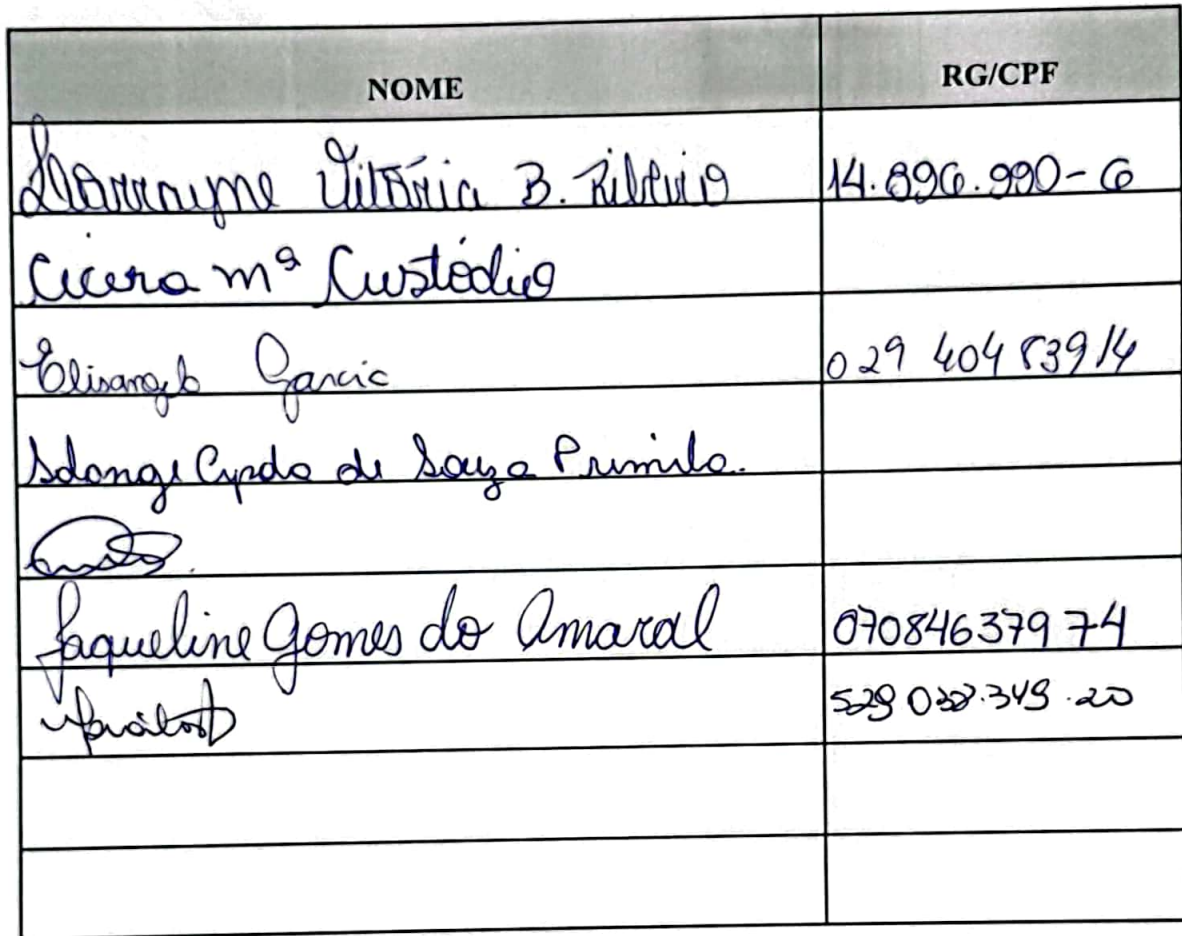 NOME RG/CPF
Vitória B. Ribeiro 14.896.990-6
Cicera Mª Custódio
Elisangela Garcia 029 404 839 14
Solange Cpda de Souza
Jaqueline Gomes do Amaral 070846379 74